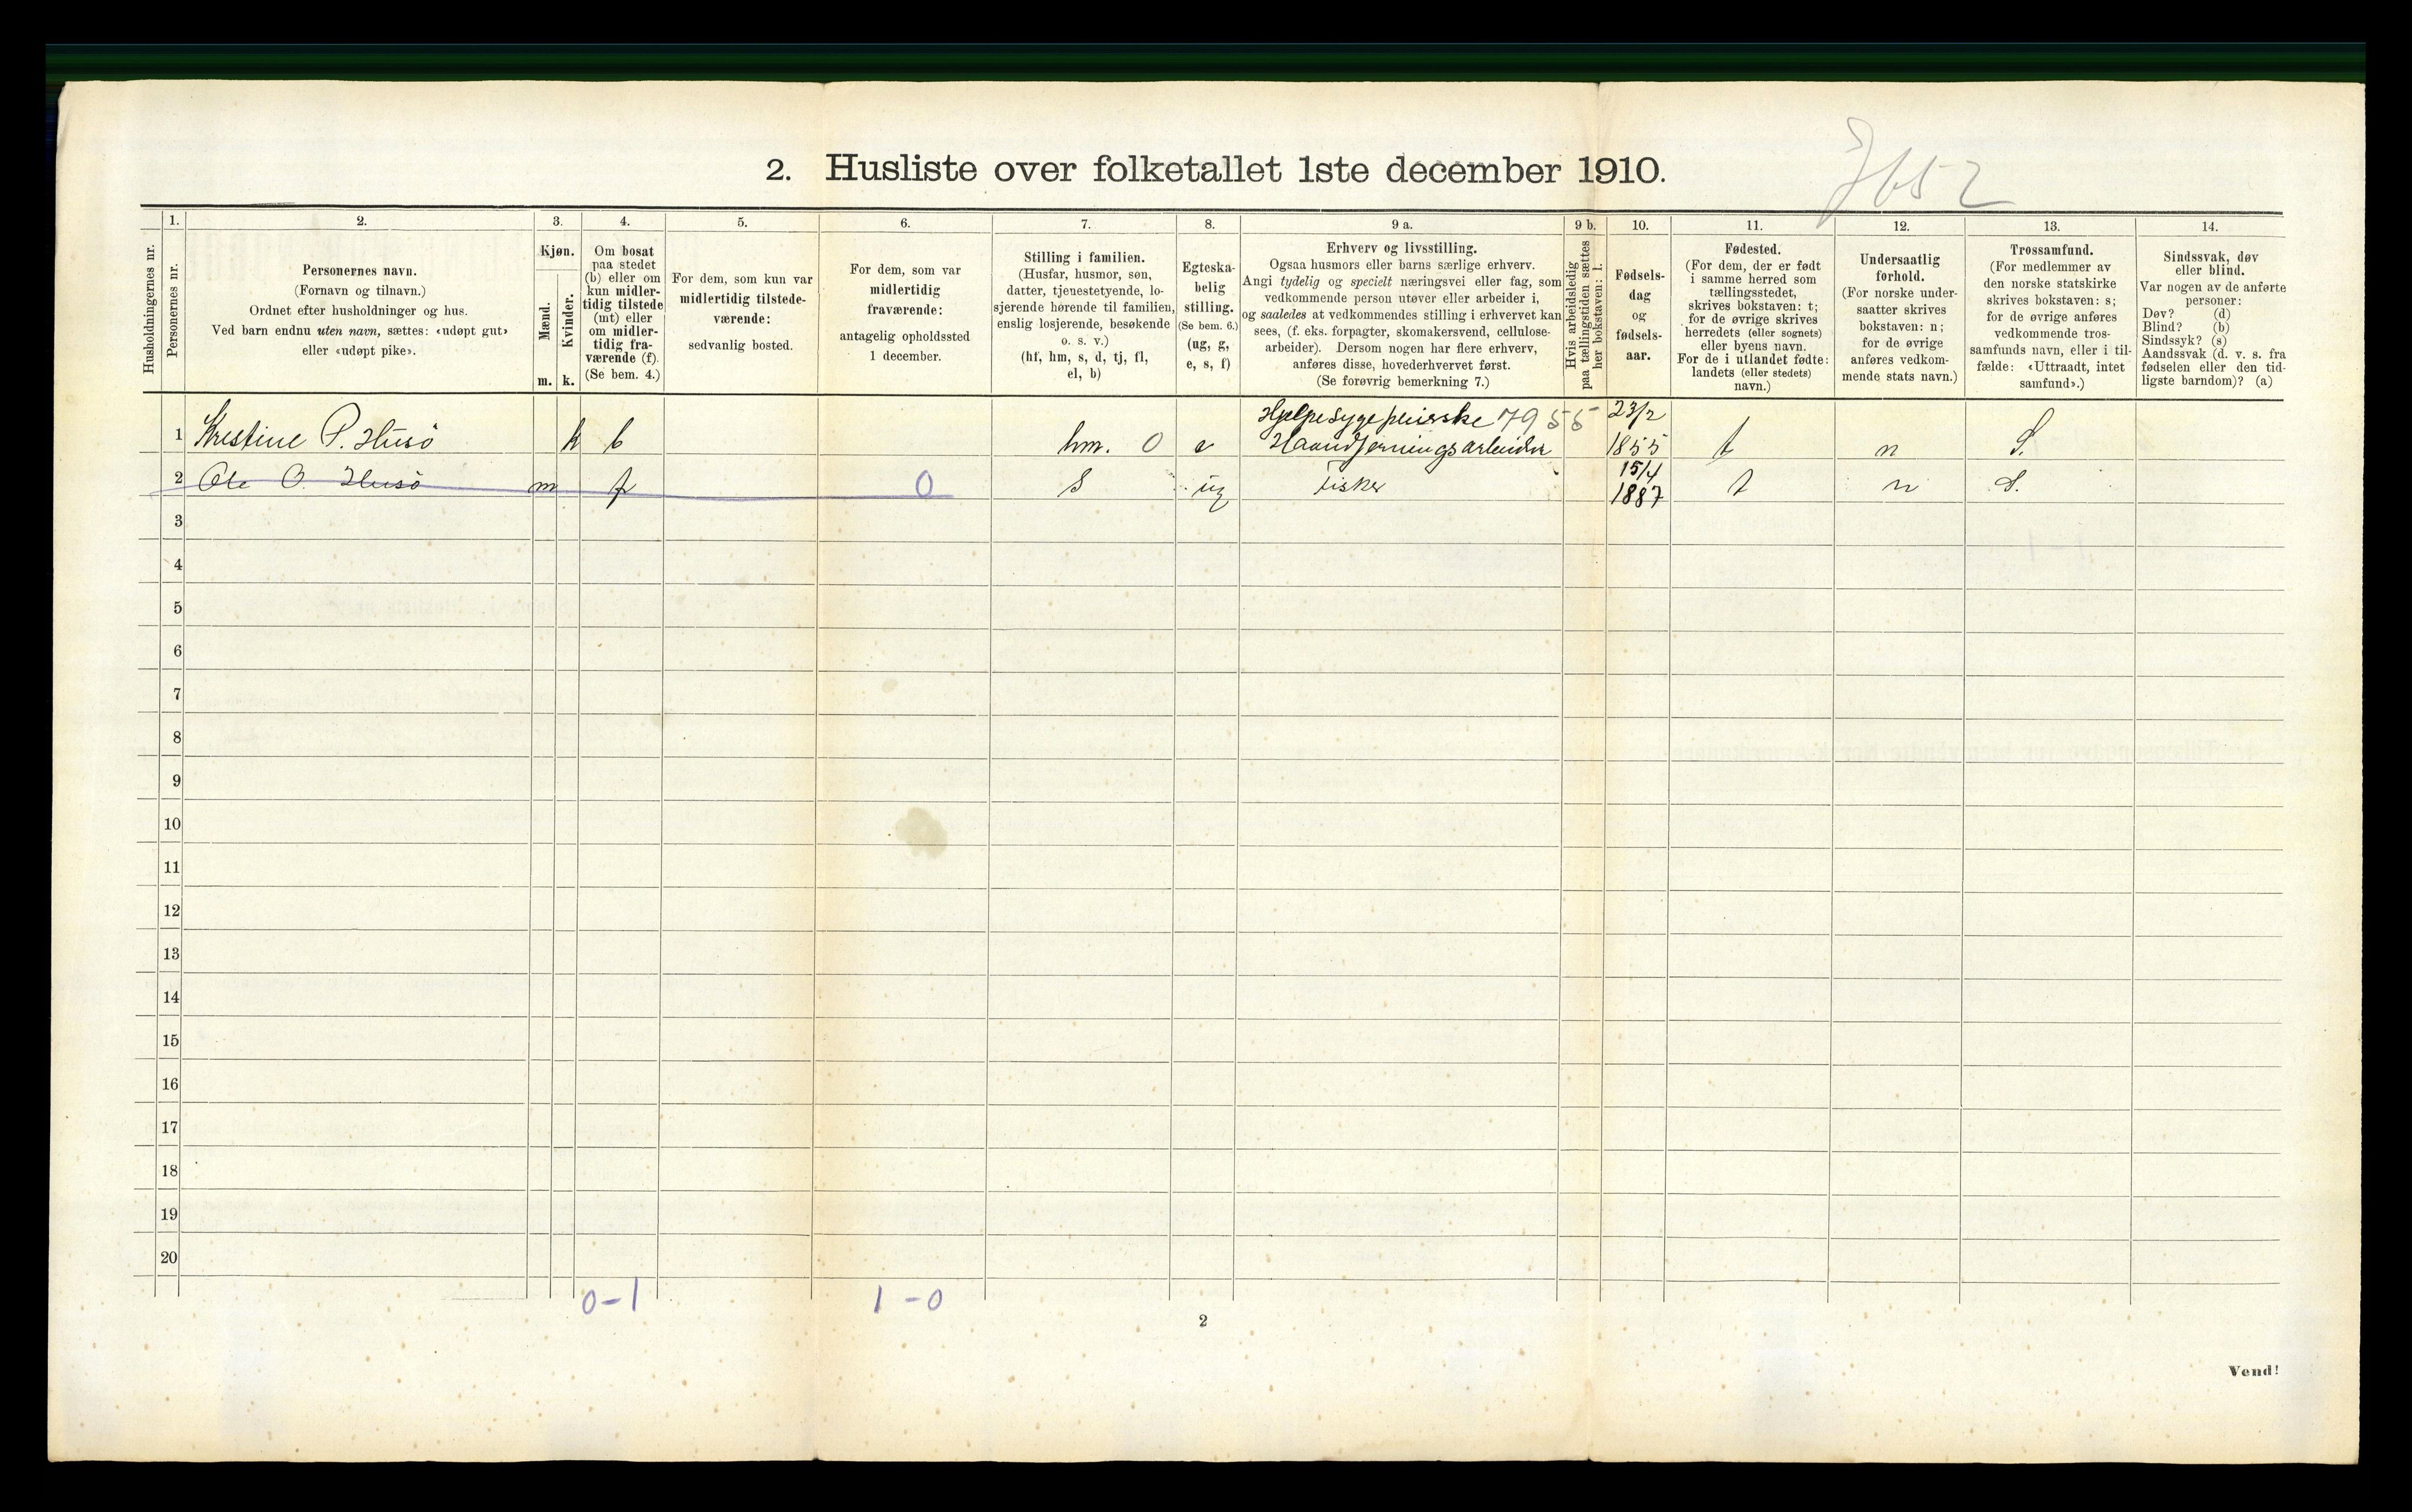 2. Husliste over folketallet 1ste december 1910.
Husholdningernes nr.
1.
Personernes nr.
2.
Personernes navn.
(Fornavn og tilnavn.)
Ordnet efter husholdninger og hus.
Ved barn endnu uten navn, sættes: «udøpt gut»
eller «udøpt pike».
3.
Kjøn.
Mænd.
m.
Kvinder.
k.
4.
Om bosat
paa stedet
(b) eller om
kun midler-
tidig tilstede
(mt) eller
om midler-
tidig fra-
værende (f).
(Se bem. 4.)
5.
For dem, som kun var
midlertidig tilstede-
værende:
sedvanlig bosted.
6.
For dem, som var
midlertidig
fraværende:
antagelig opholdssted
1 december.
7.
Stilling i familien.
(Husfar, husmor, søn,
datter, tjenestetyende, lo-
sjerende hørende til familien,
enslig losjerende, besøkende
o. s. v.)
(hf, hm, s, d, tj, fl,
el, b)
8.
Egteska-
belig
stilling.
(Se bem. 6.)
(ug, g,
e, s, f)
9 a.
Erhverv og livsstilling.
Ogsaa husmors eller barns særlige erhverv.
Angi tydelig og specielt næringsvei eller fag, som
vedkommende person utøver eller arbeider i,
og saaledes at vedkommendes stilling i erhvervet kan
sees, (f. eks. forpagter, skomakersvend, cellulose-
arbeider). Dersom nogen har flere erhverv,
anføres disse, hovederhvervet først.
(Se forøvrig bemerkning 7.)
9 b.
Hvis arbeidsledig
paa tællingstiden sættes
her bokstaven: l.
10.
Fødsels-
dag
og
fødsels-
aar.
11.
Fødested.
(For dem, der er født
i samme herred som
tællingsstedet,
skrives bokstaven: t;
for de øvrige skrives
herredets (eller sognets)
eller byens navn.
For de i utlandet fødte:
landets (eller stedets)
navn.)
12.
Undersaatlig
forhold.
(For norske under-
saatter skrives
bokstaven: n;
for de øvrige
anføres vedkom-
mende stats navn.)
13.
Trossamfund.
(For medlemmer av
den norske statskirke
skrives bokstaven: s;
for de øvrige anføres
vedkommende tros-
samfunds navn, eller i til-
fælde: «Uttraadt, intet
samfund».)
14.
Sindssvak, døv
eller blind.
Var nogen av de anførte
personer:
Døv? (d)
Blind? (b)
Sindssyk? (s)
Aandssvak (d. v. s. fra
fødselen eller den tid-
ligste barndom)? (a)
Hjelpesygepleierske 7955 23/2
1 Kristine P. Husö k b hm. 0 e Haandgerningsarbeider 1855 t n S.
15/4
2 Ole O. Husö m f 0 S ug Fisker 1887 t n S.
3
4
5
6
7
8
9
10
11
12
13
14
15
16
17
18
19
20
0-1 1-0
2
Vend!